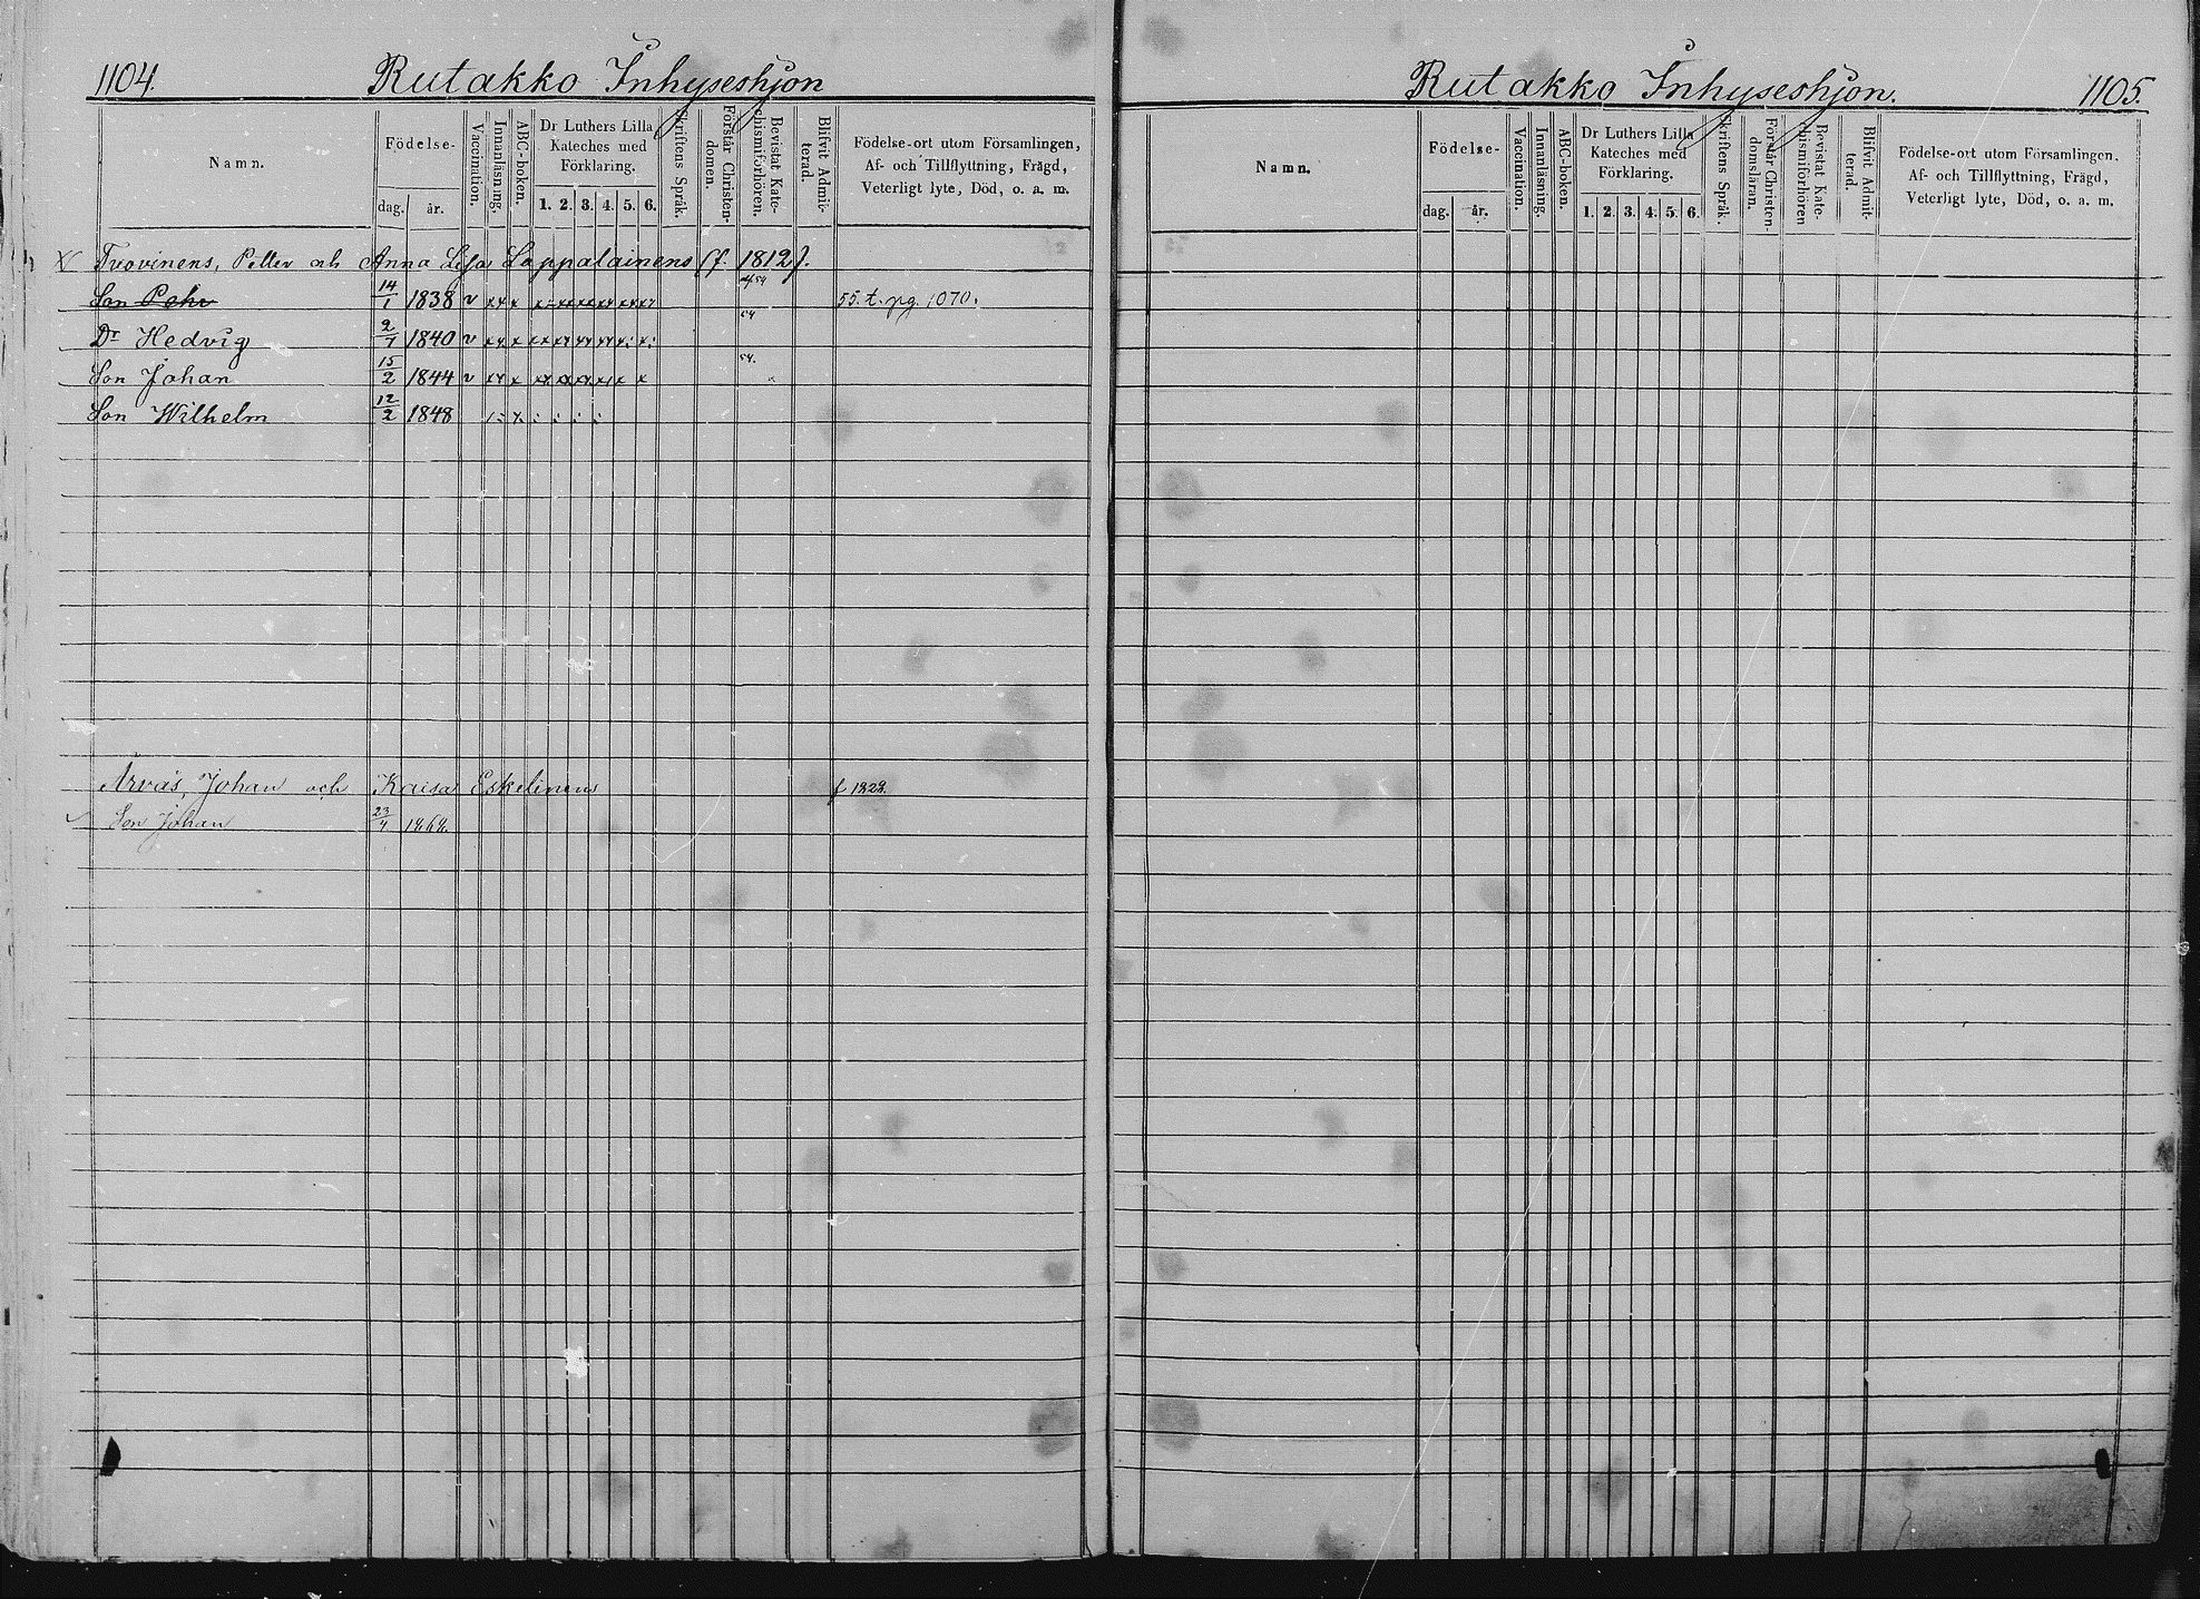 1104. Rutakko Inhyseshjon
Namn. Födelse- dag. år. Vaccination. Innanläsning. ABC-boken. Dr Luthers Lilla Kateches med Förklaring. 1. 2. 3. 4. 5. 6. Skriftens Språk. Förstår Christendomen. Bevistat Katechismiförhören. Blifvit Admitterad. Födelse-ort utom Församlingen, Af- och Tillflyttning, Frägd, Veterligt lyte, Död, o. a. m.
Petter och Anna Lisa Lappalainens (f. 1812).
Son Pehr 14/1 1838 v 54 55. t. pg. 1070.
Dr Hedvig 2/7 1840 v 54
Son Johan 15/2 1844 v 54.
Son Wilhelm 12/2 1848
Arvas, Johan och Kaisa Eskelinens f 1828.
Son Johan 23/4 1868.
Rutakko Inhyseshjon. 1105.
Namn. Födelse- dag. år. Vaccination. Innanläsning. ABC-boken. Dr Luthers Lilla Kateches med Förklaring. 1. 2. 3. 4. 5. 6. Skriftens Språk. Förstår Christendomsläran. Bevistat Katechismiförhören Blifvit Admitterad. Födelse-ort utom Församlingen, Af- och Tillflyttning, Frägd, Veterligt lyte, Död, o. a. m.